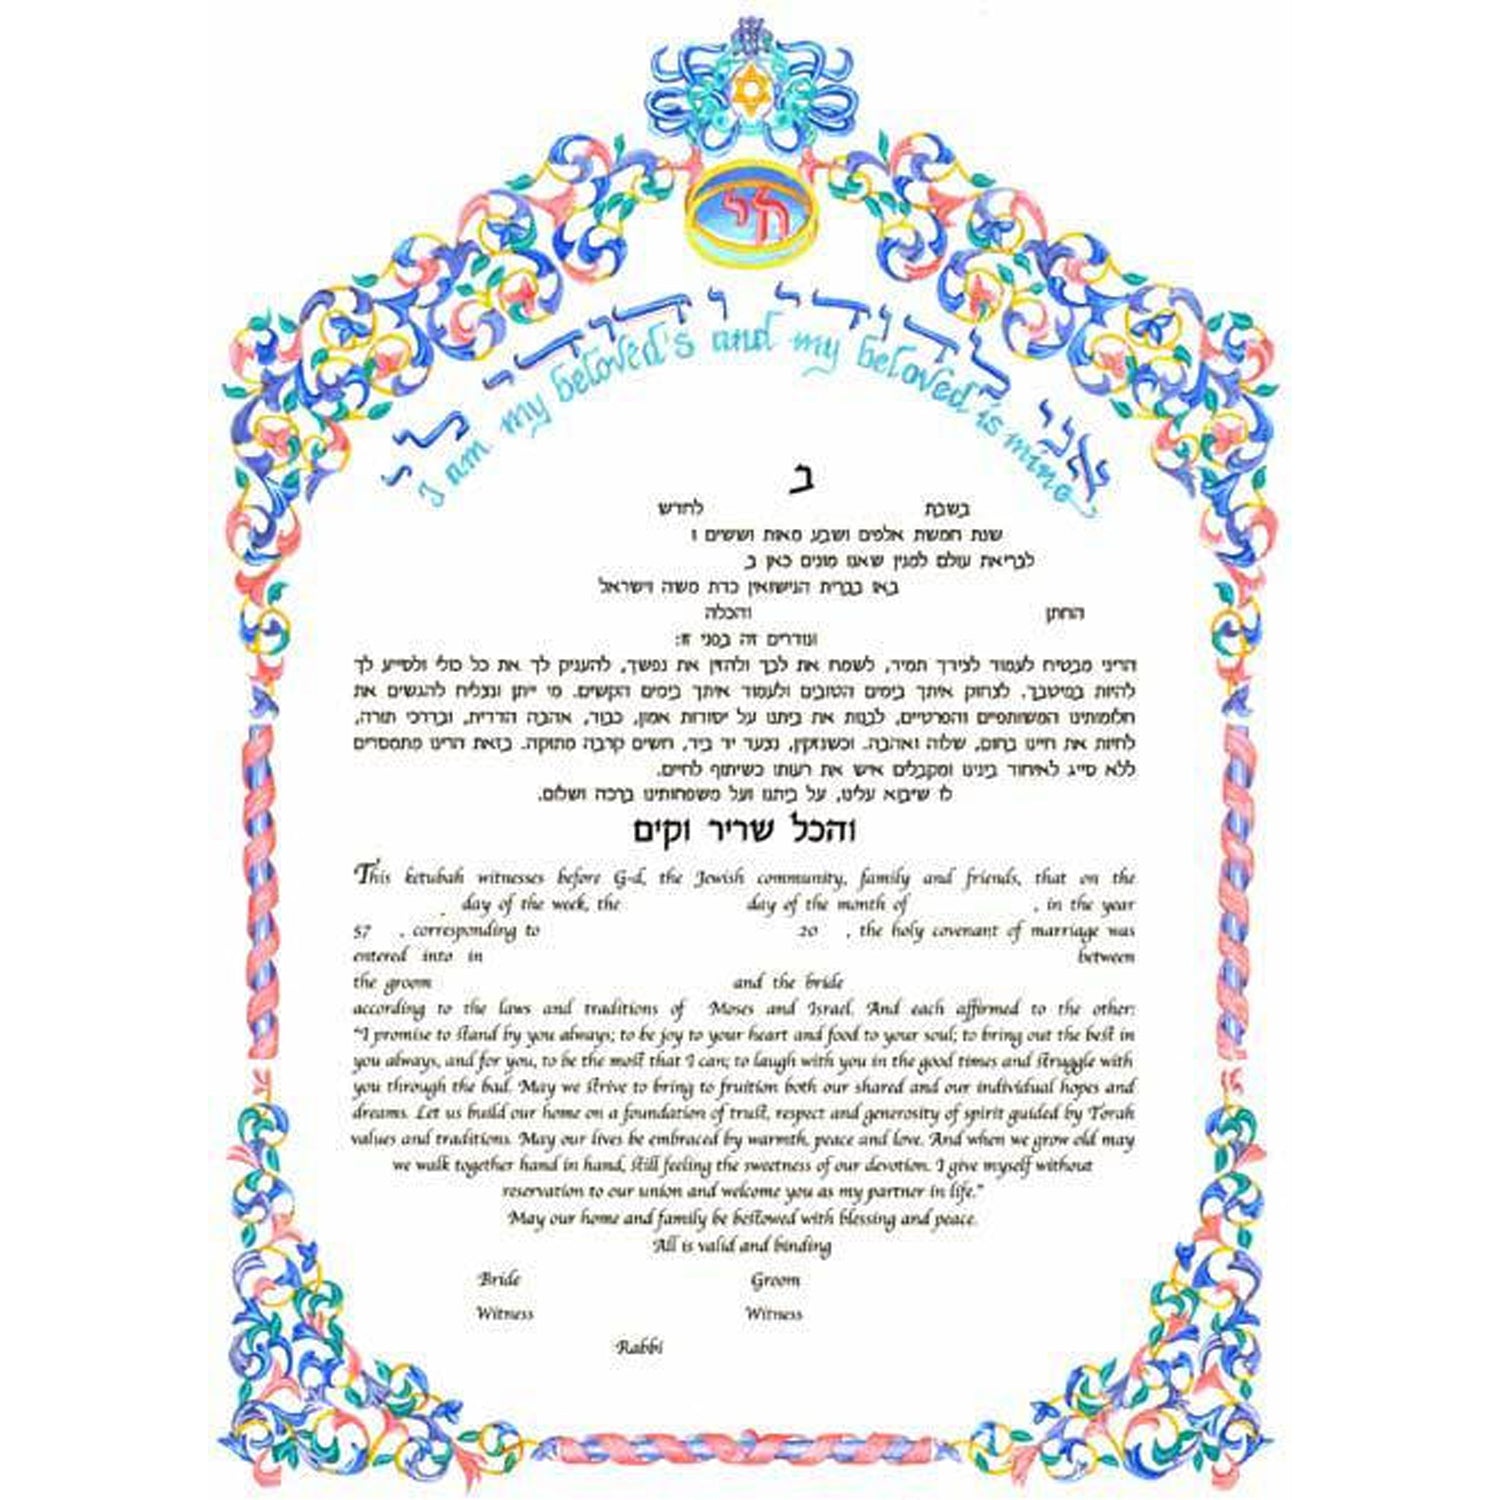 חי
אני לדודי ודודי לי
I am my beloved's and my beloved is mine
ב
בשבת לחדש
שנת חמשת אלפים ושבע מאות וששים ו
לבריאת עולם למנין שאנו מונים כאן ב
באו בברית הנישואין כדת משה וישראל
החתן והכלה
ונודרים זה בפני זו:
הריני מבטיח לעמוד לצידך תמיד, לשמח את לבך ולהזין את נפשך, להעניק לך את כל כולי ולסייע לך
להיות במיטבך, לצחוק איתך בימים הטובים ולעמוד איתך בימים הקשים. מי ייתן ונצליח להגשים את
חלומותינו המשותפיים והפרטיים, לבנות את ביתנו על יסודות אמון, כבוד, אהבה הדדית, ובדרכי תורה,
לחיות את חיינו בחום, שלוה ואהבה. וכשנזקין, נצעד יד ביד, חשים קרבה מתוקה. בזאת הרינו מתמסרים
ללא סייג לאיחוד בינינו ומקבלים איש את רעותו כשיתוף לחיים.
לו שיבוא עלינו, על ביתנו ועל משפחותינו ברכה ושלום.
והכל שריר וקים
This ketubah witnesses before G-d, the Jewish community, family and friends, that on the
day of the week, the day of the month of , in the year
57 , corresponding to 20 , the holy covenant of marriage was
entered into in between
the groom and the bride
according to the laws and traditions of Moses and Israel. And each affirmed to the other:
"I promise to stand by you always; to be joy to your heart and food to your soul; to bring out the best in
you always, and for you, to be the most that I can; to laugh with you in the good times and struggle with
you through the bad. May we strive to bring to fruition both our shared and our individual hopes and
dreams. Let us build our home on a foundation of trust, respect and generosity of spirit guided by Torah
values and traditions. May our lives be embraced by warmth, peace and love. And when we grow old may
we walk together hand in hand, still feeling the sweetness of our devotion. I give myself without
reservation to our union and welcome you as my partner in life."
May our home and family be bestowed with blessing and peace.
All is valid and binding
Bride Groom
Witness Witness
Rabbi